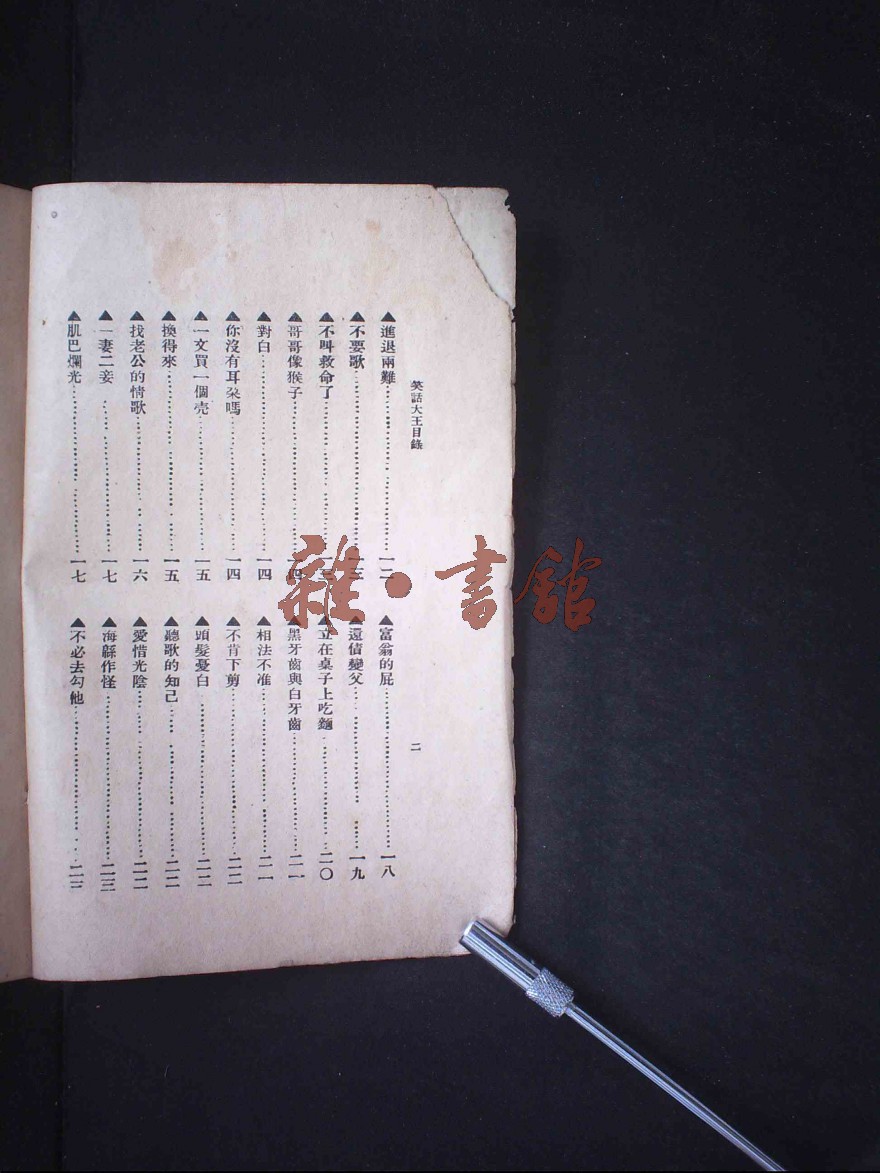 笑話大王目錄
二
▲進退兩難…………一二
▲不要歌…………一三
▲不叫救命了…………一三
▲哥哥像猴子…………一四
▲對白…………一四
▲你沒有耳朶嗎…………一四
▲一文買一個壳…………一五
▲換得來…………一五
▲找老公的情歌…………一六
▲一妻二妾…………一七
▲肌巴爛光…………一七
▲富翁的屁…………一八
▲還債變父…………一九
▲立在桌子上吃麵…………二〇
▲黑牙齒與白牙齒…………二一
▲相法不准…………二一
▲不肯下剪…………二二
▲頭髮憂白…………二二
▲聽歌的知己…………二二
▲愛惜光陰…………二二
▲海繇作怪…………二三
▲不必去勾他…………二三
雜·書館